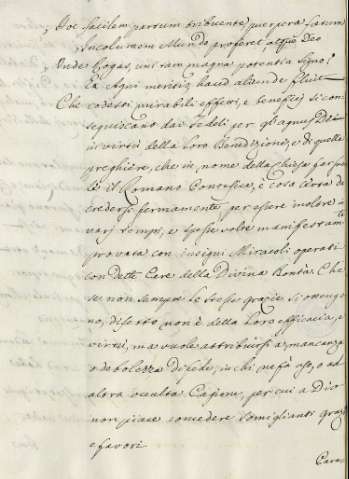 Hoc facilem partum tribuente puerpera faetum
Incolumem Mundo proferet, atque Deo
Unde rogas, cui tam magna potentia signo?
Ex Agni meritis haud aliunde fluit
Che codesti mirabili effetti, e beneficj si con-
seguiscano dai Fedeli per gl'agnus Dei
in virtù della loro Benedizione, e di quelle
preghiere, che in nome della Chiesa fa sopra
di il Romano Pontefice, è cosa certa da
credersi fermamente per essere molte, e
varj tempi, e spesse volte manifestam:te
provata con insigni Miracoli operati
con dette Cere della Divina Bontà. E che
se non sempre le stesse grazie si ottengo-
no, difetto non è della loro efficacia, e
virtù, ma vuole attribuirsi a mancanza
o debolezza di fede, in chi ne fà uso, o ad
altra occulta Cagione, per cui a Dio
non piace concedere somiglianti grazie
e favori